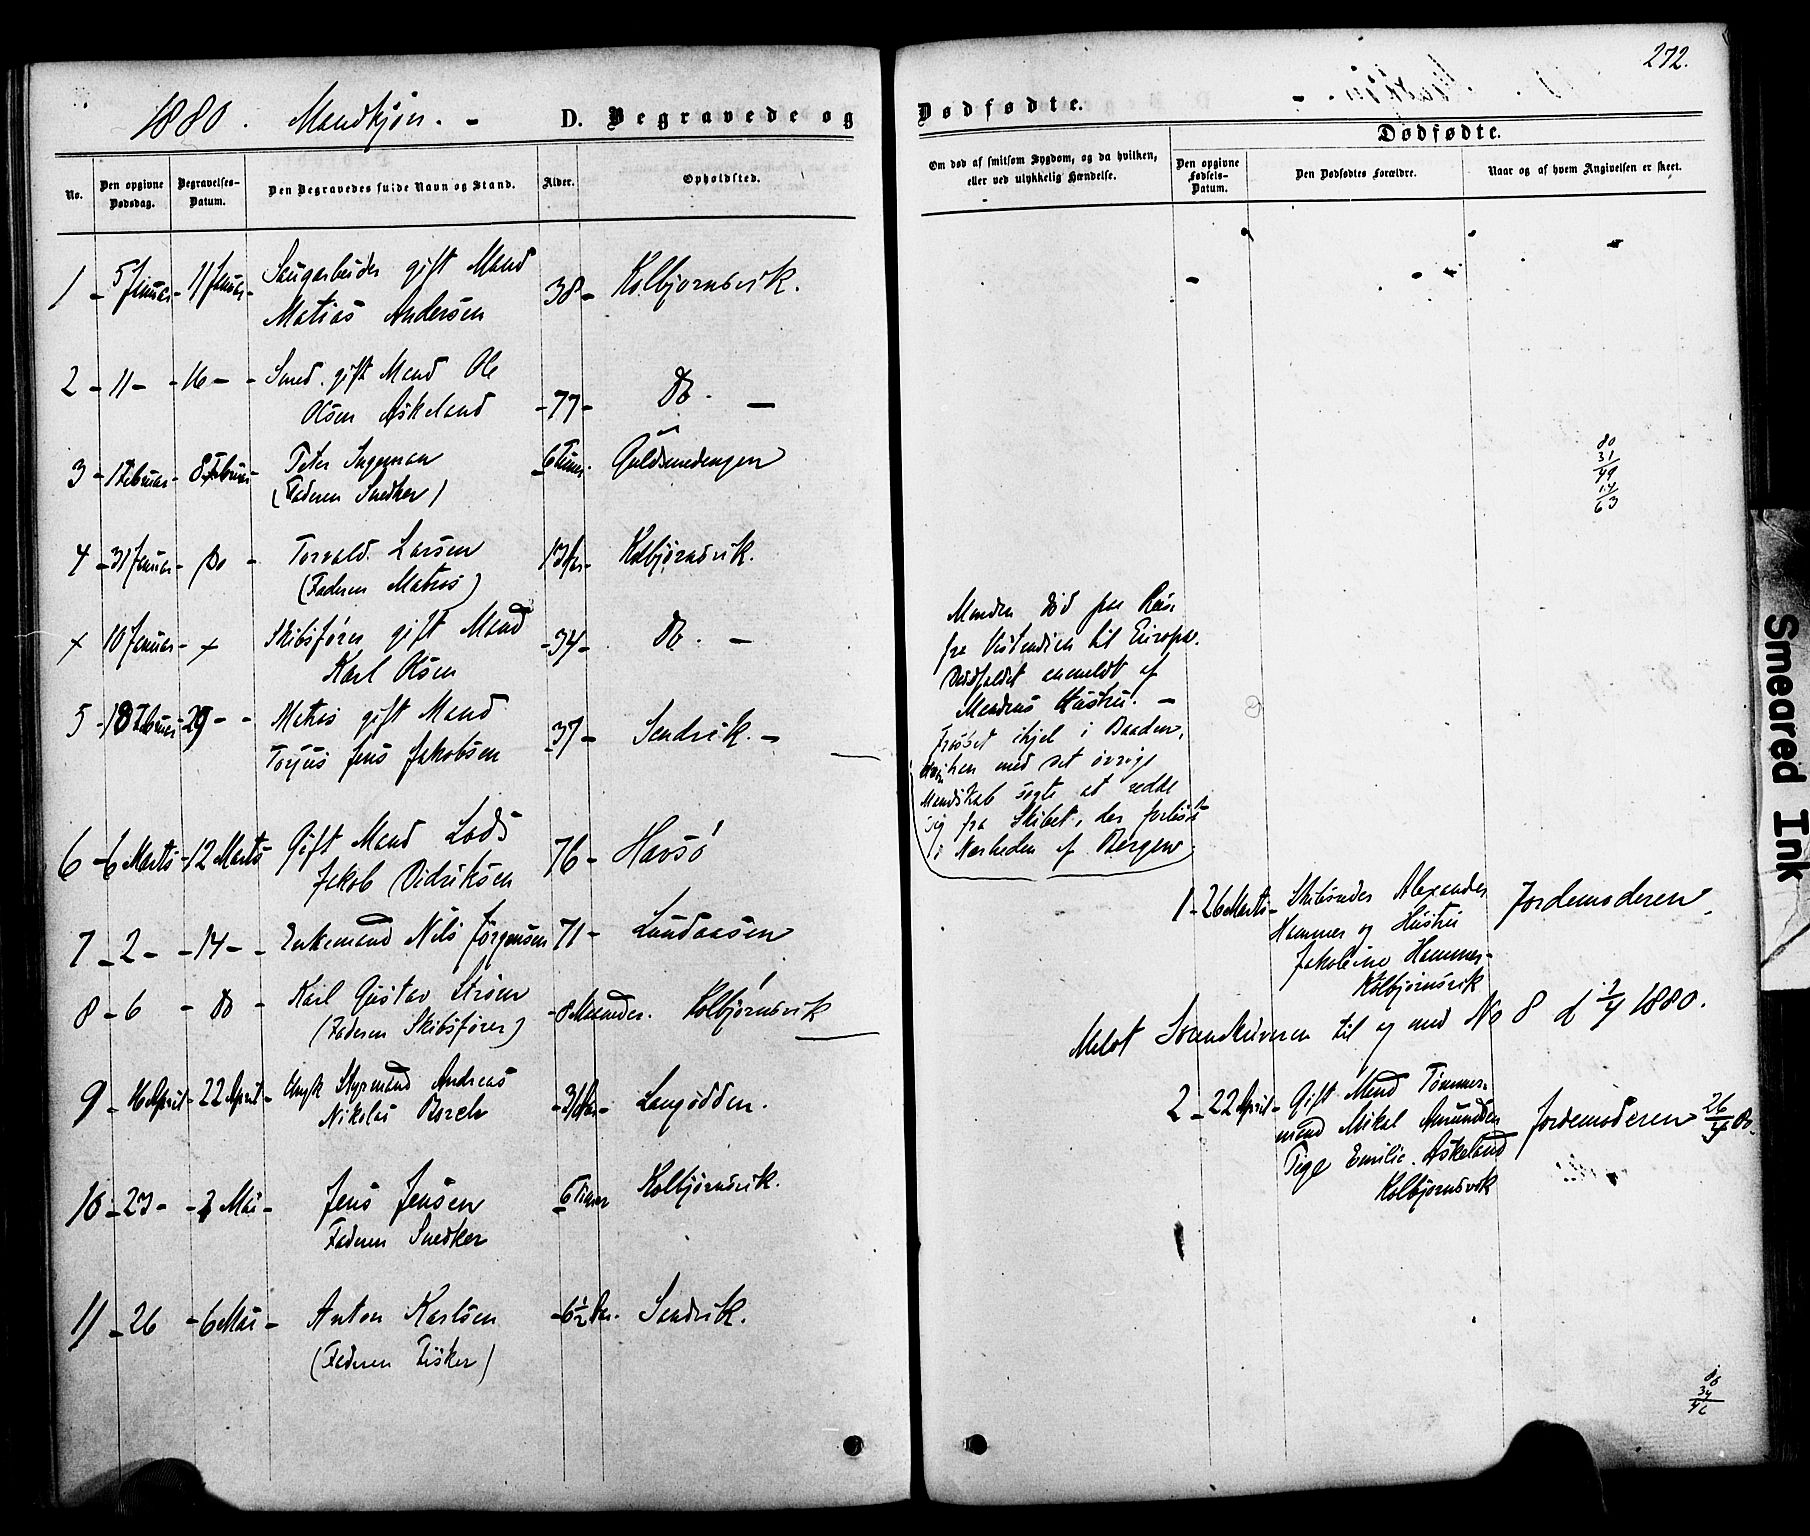 272.
1880. Mandkjön. - D. Begravede og
Dødfødte.
Dødfødte.
No.
Den opgivne Dødsdag.
Begravelses-Datum.
Den Begravedes fulde Navn og Stand.
Alder.
Opholdsted.
Om død af smitsom Sygdom, og da hvilken, eller ved ulykkelig Hændelse.
Den opgivne Fødsels-Datum.
Den Dødfødtes Forældre.
Naar og af hvem Angivelsen er skeet.
1 - 5 Januar - 11 Januar - Saugarbeider gift Mand 38 - Kolbjornsvik.
Matias Andersen
2 - 11 - - 16 - - Smed. gift Mand Ole
Olsen Askeland - 77 - Do. -
3 - 1 Februar - 8 Februar - Peter Ingeman 6 Timer. Guldsmedengen
(Faderen Snedker)
4 - 31 Januar - Do - Torvald Larsen 13 Aar - Kolbjørnsvik.
(Faderen Matros)
x - 10 Januar - x Skibsfører gift Mand - 34 - Do. -
Karl Olsen
Manden död paa Reise
fra Vestindien til Europa.
Dødsfaldet anmeldt af
Mandens Hustru. -
5 - 18 Februar - 29 - - Matros gift Mand
Torjus Jens Jakobsen - 37 - Sandvik. -
Frosset ihjel i Baaden,
hvori han med det øvrige
Mandskab søgte at redde
sig fra Skibet, der forliste
i Nærheden af Bergen.
6 - 6 Marts - 12 Marts Gift Mand Lods 76 - Havsö
Jakob Didriksen
7 - 2 - - 14 - - Enkemand Nils Jörgensen 71 - Lundaasen
8 - 6 - Do - Karl Gustav Ström - 8 Maaneder. Kolbjörnsvik
(Faderen Skibsfører)
9 - 16 April - 22 April - Ungk Styrmand Andreas - 31 Aar - Langodden.
Nikolai Borch
10 - 23 - - 2 Mai - Jens Jensen 6 Timer Kolbjørnsvik.
Faderen Snedker
11 - 26 - 6 Mai - Anton Karlsen - 6½ Aar. Sandvik.
(Faderen Fisker)
80
31
49
14
63
1 - 26 Marts - Skibsreder Alexander Jordemoderen.
Hammer og Hustru
Jakobine Hammer -
Kolbjornsvik
Meldt Sorenskriveren til og med No 8 d 2/4 1880.
2 - 22 April - Gift Mand Tömmer-
mand Mikal Amundsen Jordemoderen 26/4 80.
Pige Emilie Askeland
Kolbjornsvik
80
34
46
Smeared Ink